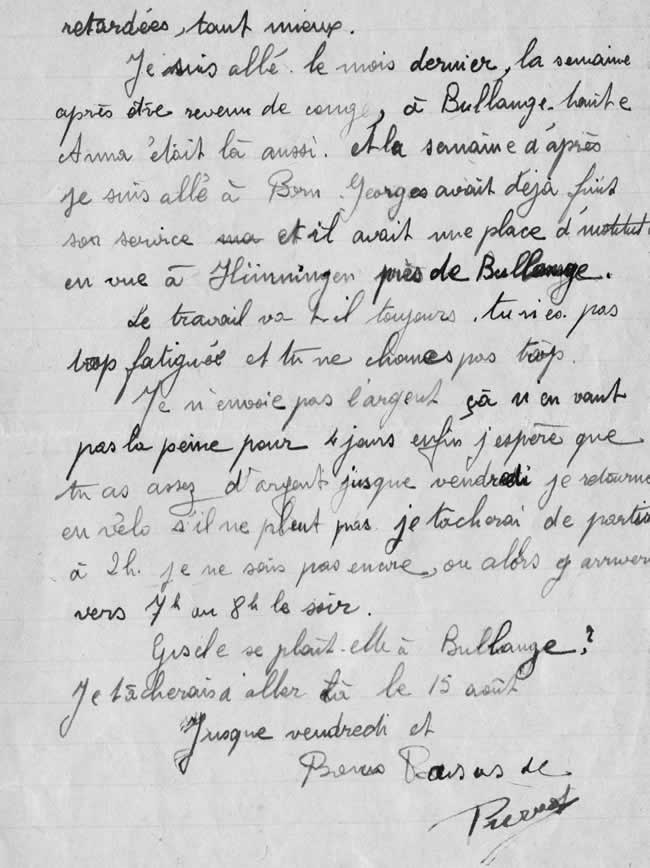 retardées, tant mieux.
Je suis allé le mois dernier, la semaine
après être revenu de congé, à Bullange. tante
Anna était là aussi. et la semaine d'après
je suis allé à Born. Georges avait déjà finit
son service et il avait une place d'institut
en vue à Hünningen près de Bullange.
Le travail va t-il toujours, tu n'es pas
trop fatiguée et tu ne chomes pas trop.
Je n'envoie pas l'argent çà n'en vaut
pas la peine pour 4 jours enfin j'espère que
tu as assez d'argent jusque vendredi je retourne
en vélo s'il ne pleut pas. je tâcherai de partir
à 2h. je ne sais pas encore, ou alors y arriver
vers 7h ou 8h le soir.
Gisèle se plaît-elle à Bullange?
Je tâcherais d'aller là le 15 août
Jusque vendredi et
Bons Baisers de